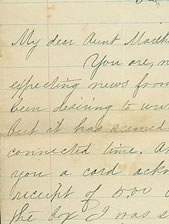 My dear Aunt
You are,
expecting news from
been desiring to
but it has seemed
connected time.
you a card
receipt of 5.00
the box I was